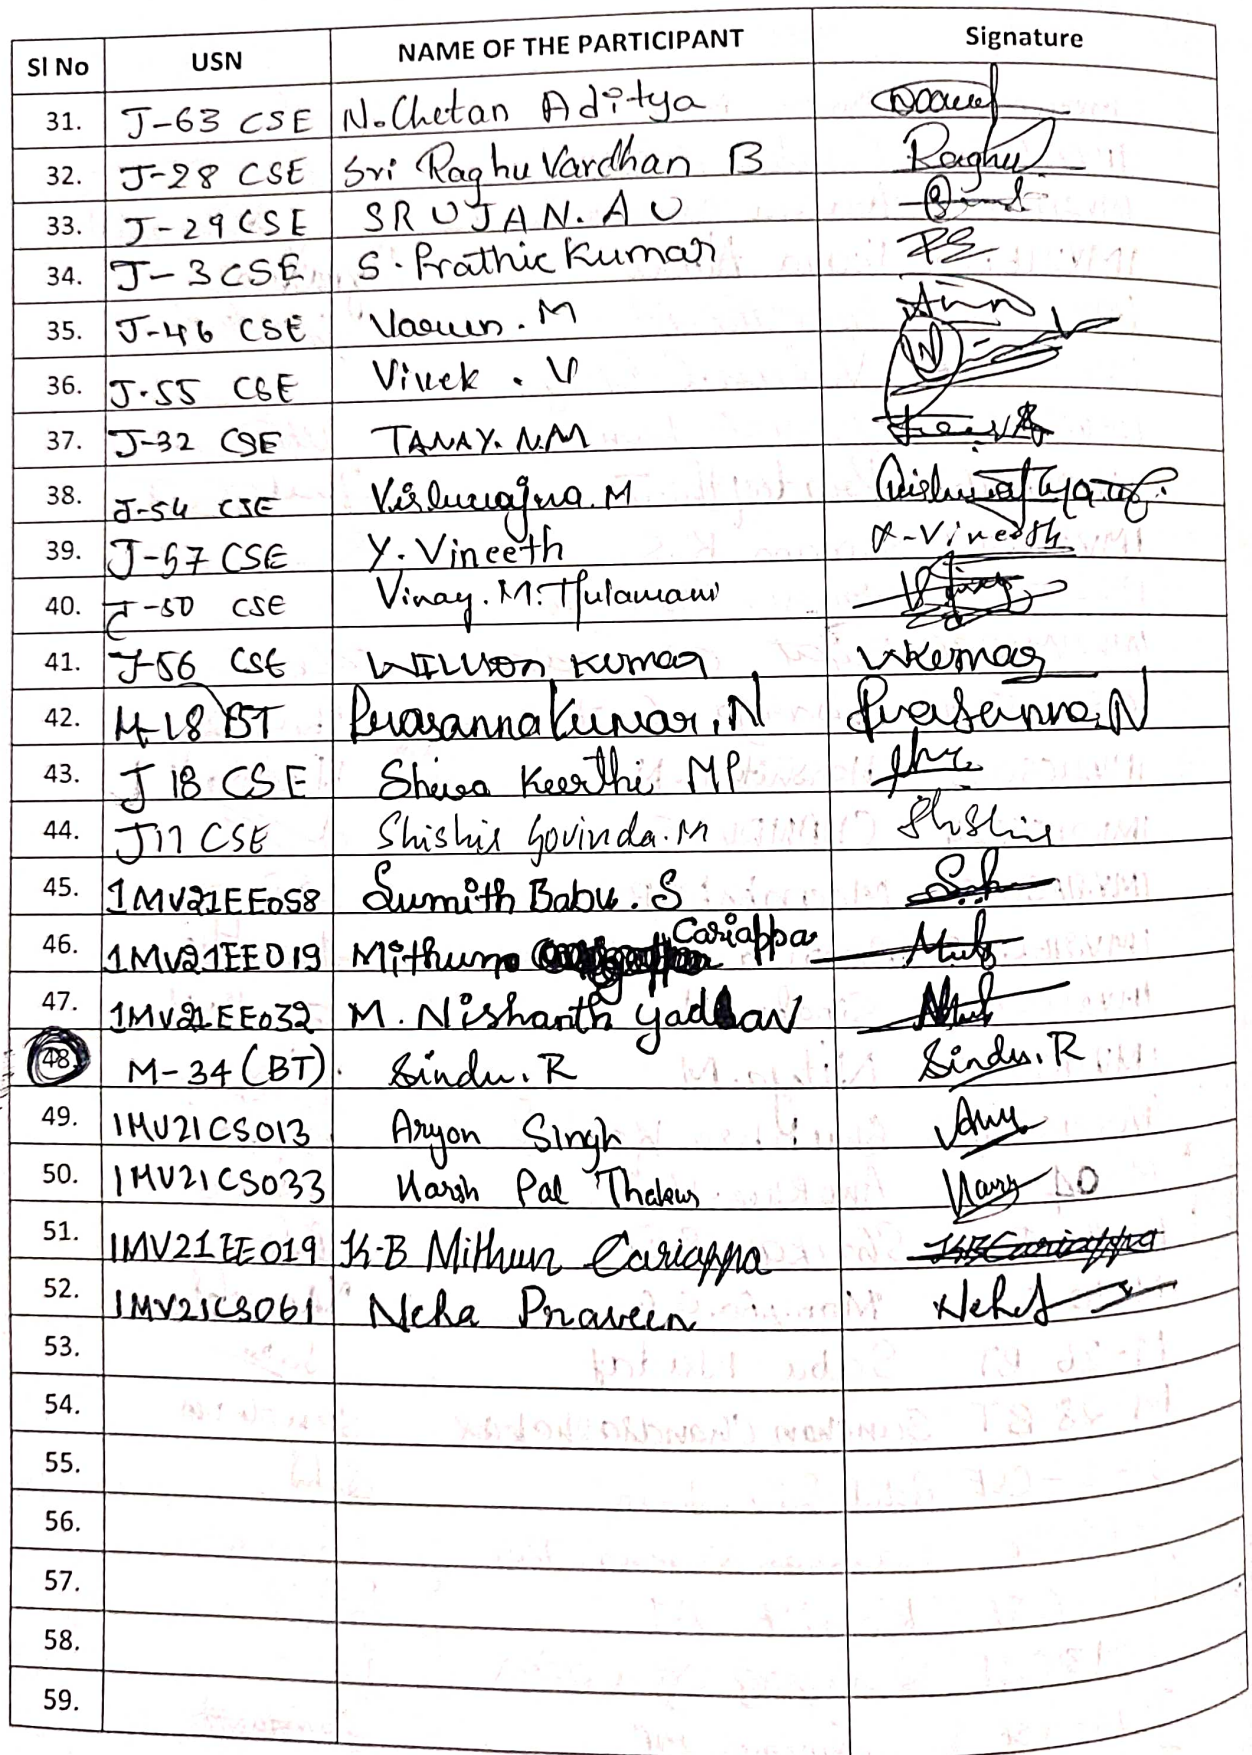 Sl No USN NAME OF THE PARTICIPANT Signature
31. J-63 CSE N.Chetan Aditya
32. J-28 CSE Sri Raghu Vardhan B Raghu
33. J-29 CSE SRUJAN.A U
34. J-3 CSE S.Prathic Kumar PS
35. J-46 CSE Varun.M
36. J-55 CSE Vivek.V
37. J-32 CSE TANAY.N.M
38. J-54 CSE Vishwajna.M
39. J-57 CSE Y.Vineeth Y-Vineeth
40. J-50 CSE Vinay.M.Hulamani
41. J-56 CSE WILLSON KUMAR WKumar
42. M-18 BT Prasanna Kumar.N Prasanna.N
43. J 18 CSE Shiva Keerthi MP
44. J17 CSE Shishir Govinda.M Shishir
45. 1MV21EE058 Sumith Babu.S
46. 1MV21EE019 Mithun Cariappa
47. 1MV21EE032 M.Nishanth Yadav
48. M-34(BT) Sindu.R Sindu.R
49. 1MV21CS013 Aryan Singh
50. 1MV21CS033 Harsh Pal Thakur
51. 1MV21EE019 K.B Mithun Cariappa KBCariappa
52. 1MV21CS061 Neha Praveen
53.
54.
55.
56.
57.
58.
59.